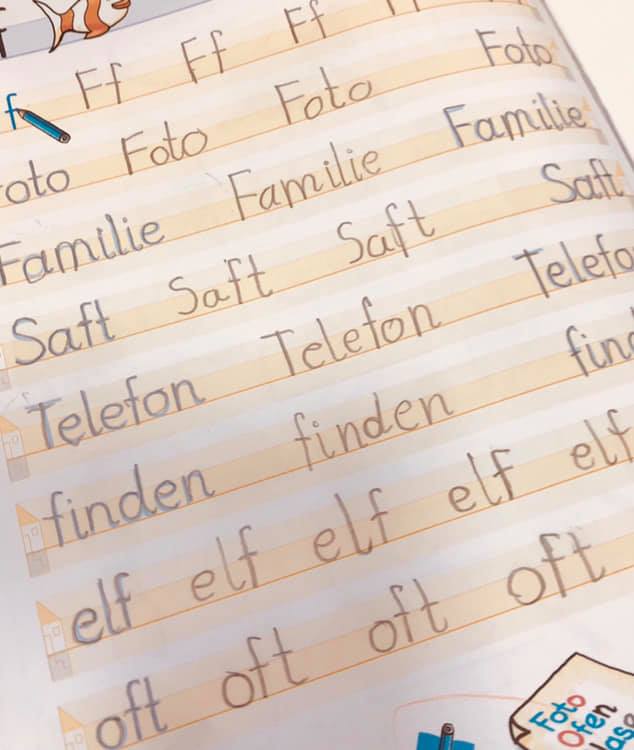 f Ff Ff Ff
oto Foto Foto Foto
Familie Familie Familie
Saft Saft Saft Saft
Telefon Telefon Telefo
finden finden find
elf elf elf elf elf
oft oft oft oft
Foto
Ofen
ase